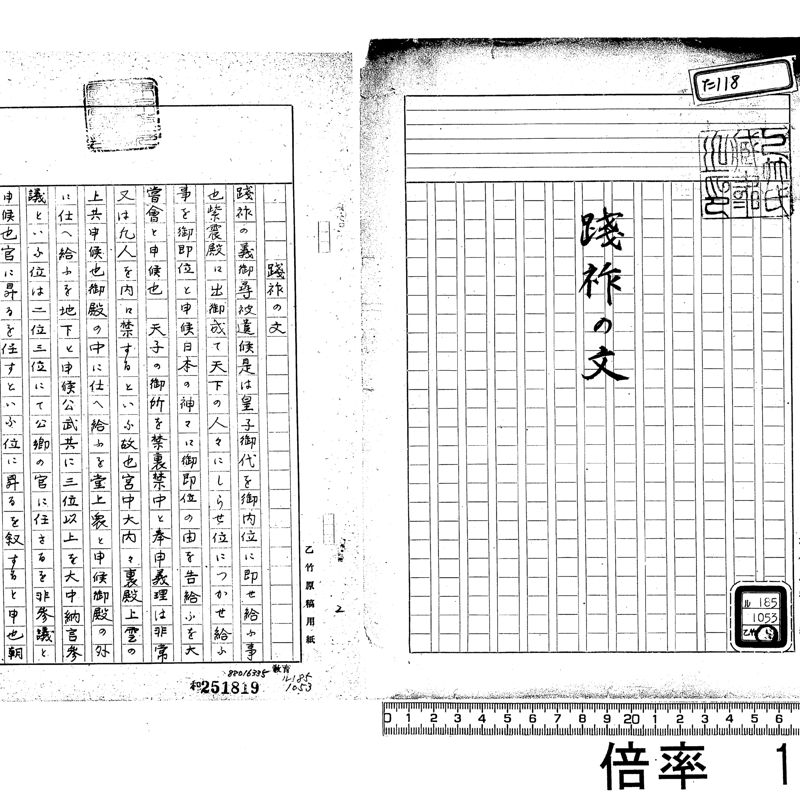 た118
乙竹氏
蔵書
踐祚の文
ル 185
1053
乙竹
踐祚の文
踐祚の義御尋被遣候是は皇子御代を御内位に即せ給ふ事
也紫震殿に出御成て天下の人々にしらせ位につかせ給ふ
事を御即位と申候日本の神々に御即位の由を告給ふを大
嘗會と申候也 天子の御所を禁裏禁中と奉申義理は非常
又は凡人を内に禁するといふ故也宮中大内々裏殿上雲の
上共申候也御殿の中に仕へ給ふを堂上衆と申候御殿の外
に仕へ給ふを地下と申候公武共に三位以上を大中納言参
議といふ位は二位三位にて公卿の官に任さるを非参議と
申候也官に昇るを任すといふ位に昇るを叙すると申也朝
乙竹原稿用紙
2
88016335
教育
ル185
1053
和251819
0 1 2 3 4 5 6 7 8 9 20 1 2 3 4 5 6
倍率 1